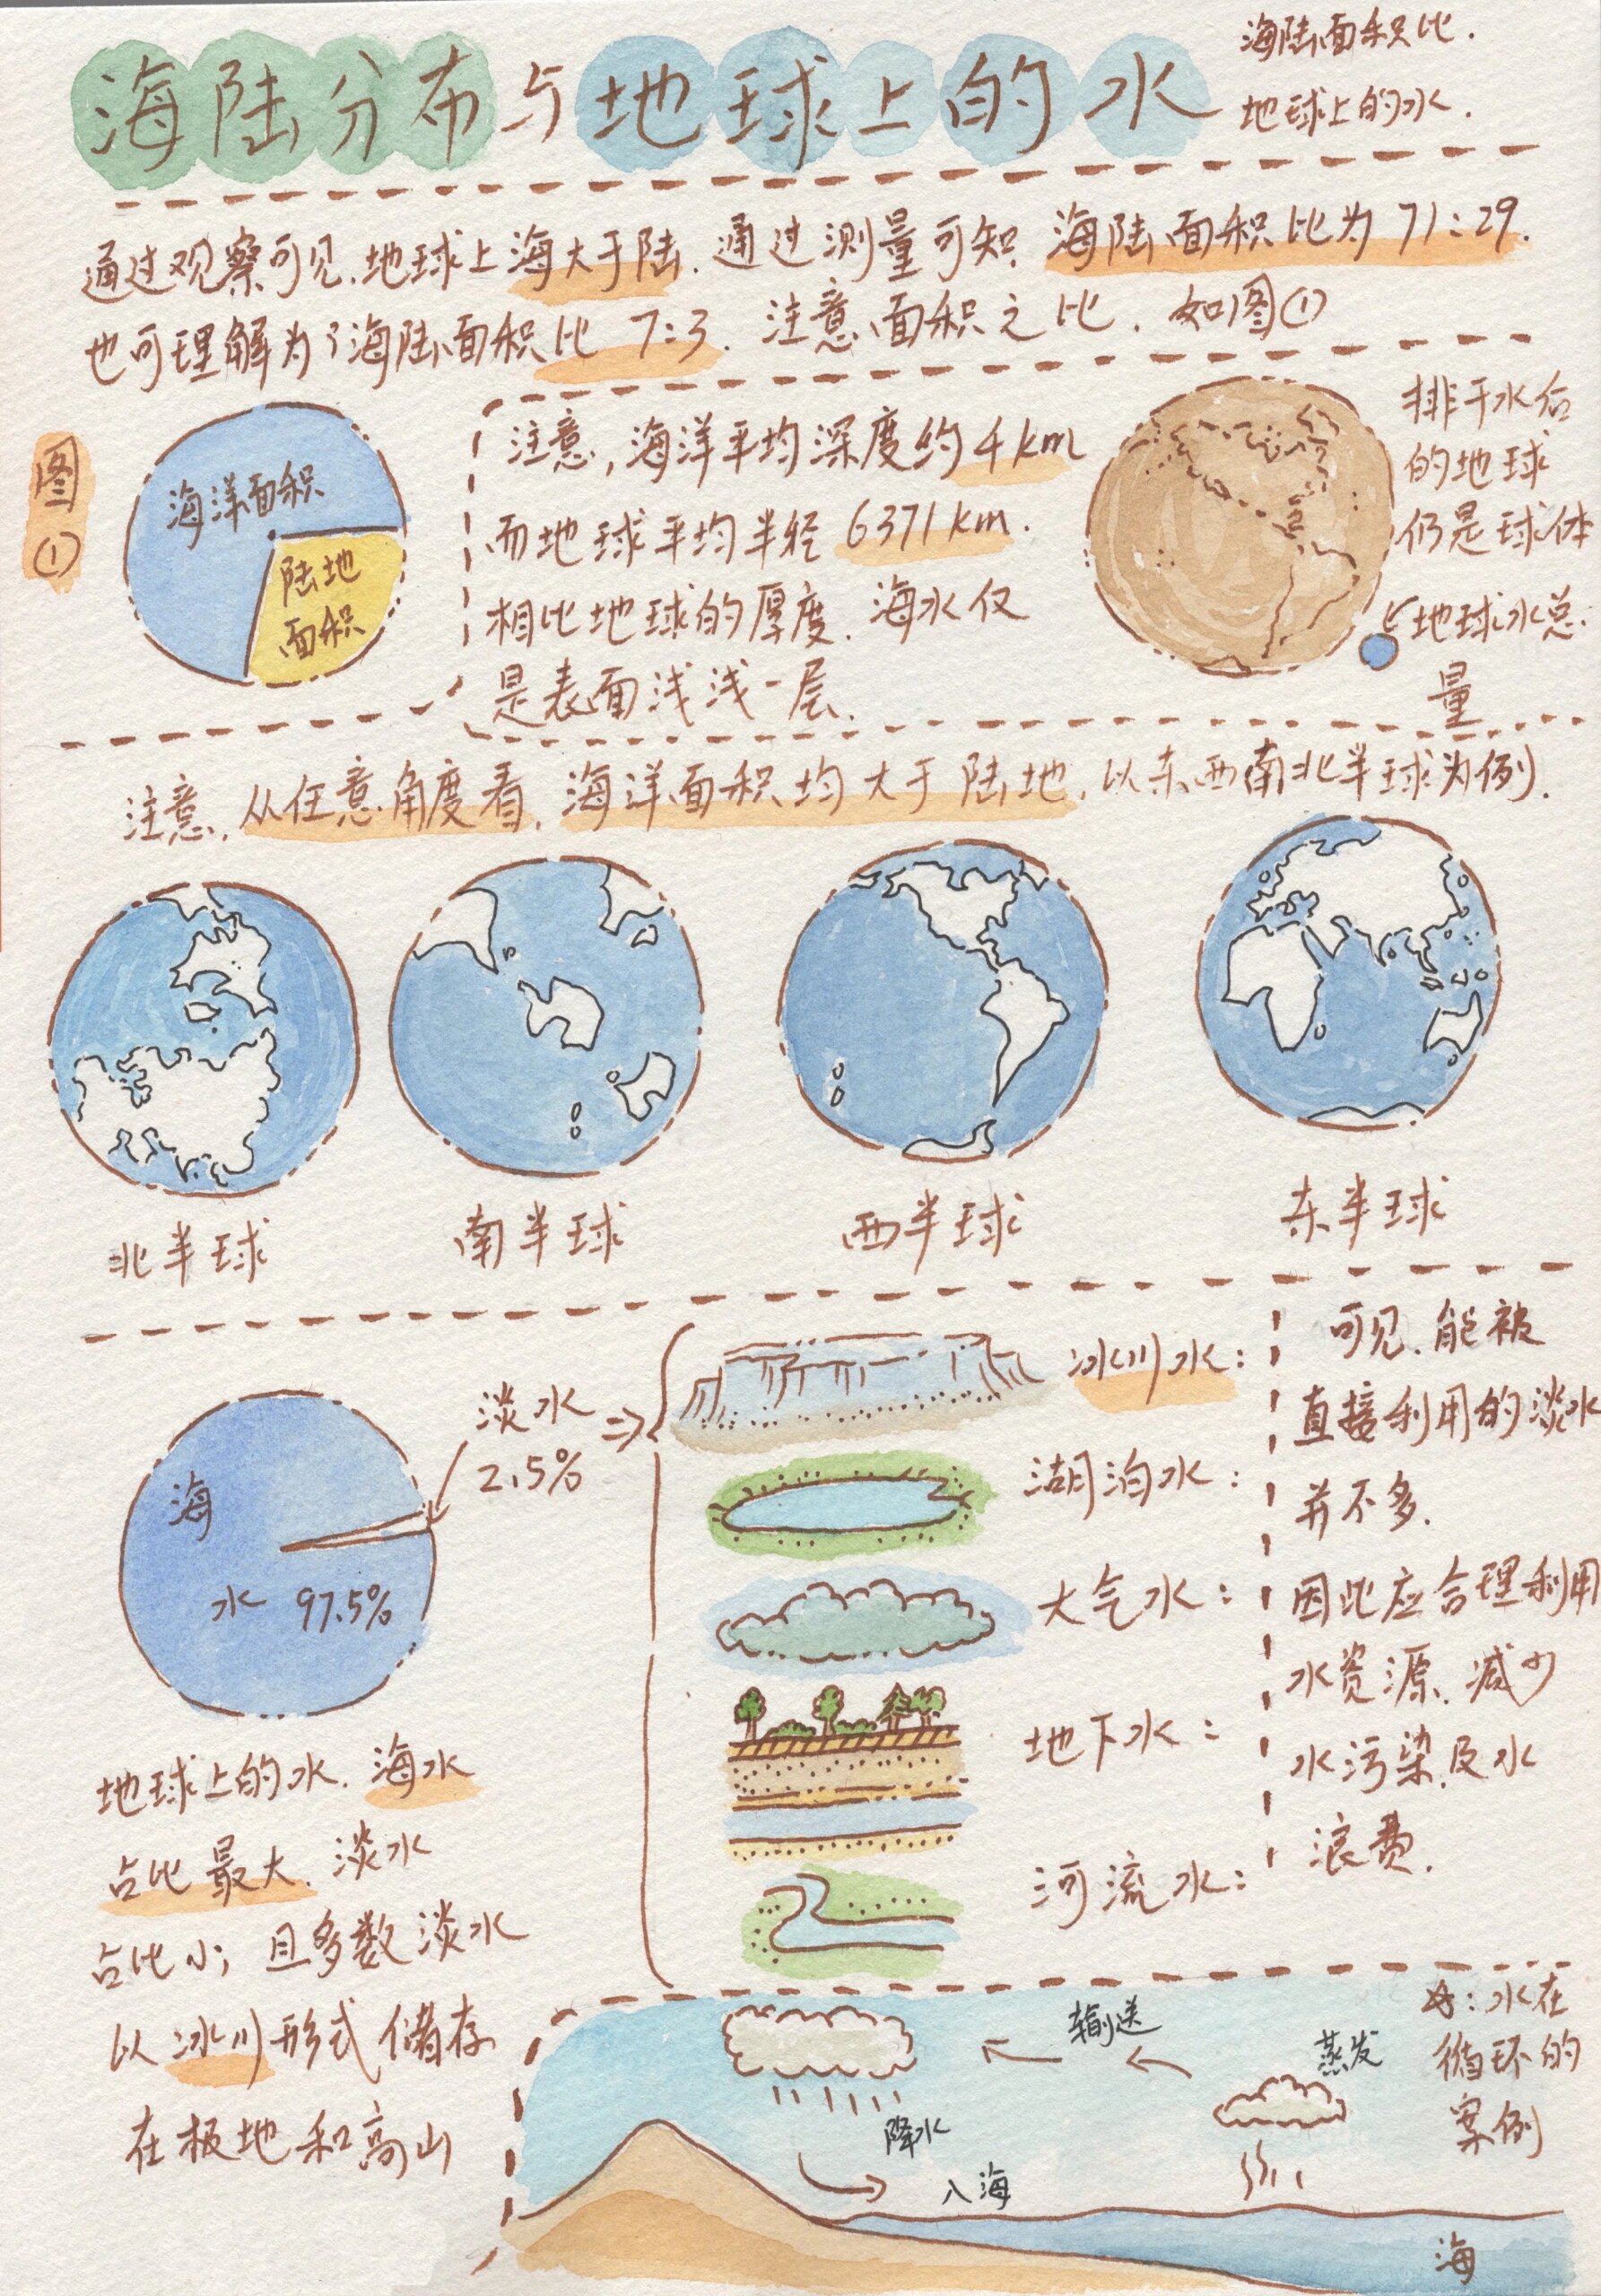 海陆分布与地球上的水
海陆面积比.
地球上的水.
通过观察可见.地球上海大于陆.通过测量可知.海陆面积比为71:29.
也可理解为海陆面积比7:3.注意,面积之比.如图①
图①
海洋面积
陆地
面积
注意,海洋平均深度约4km
而地球平均半径6371km.
相比地球的厚度.海水仅
是表面浅浅一层.
排干水后
的地球
仍是球体
地球水总
量
注意.从任意角度看.海洋面积均大于陆地.以东西南北半球为例.
北半球
南半球
西半球
东半球
海
水 97.5%
淡水
2.5%
地球上的水.海水
占比最大.淡水
占比小,且多数淡水
以冰川形式储存
在极地和高山
冰川水:
湖泊水:
大气水:
地下水:
河流水:
可见.能被
直接利用的淡水
并不多.
因此应合理利用
水资源.减少
水污染及水
浪费.
输送
蒸发
降水
入海
海
水在
循环的
案例